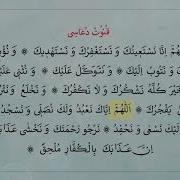 قنوت دعاسى
اَللّٰهُمَّ اِنَّا نَسْتَعِينُكَ وَ نَسْتَغْفِرُكَ وَ نَسْتَهْدِيكَ ۞ وَ نُؤْ
وَ نَتُوبُ اِلَيْكَ ۞ وَ نَتَوَكَّلُ عَلَيْكَ ۞ وَ نُثْنِى عَلَيْكَ
كُلَّهُ نَشْكُرُكَ ۞ وَ لَا نَكْفُرُكَ ۞ وَ نَخْلَعُ وَ نَتْرُ
يَفْجُرُكَ ۞ اَللّٰهُمَّ اِيَّاكَ نَعْبُدُ وَ لَكَ نُصَلِّى وَ نَسْجُدُ
اِلَيْكَ نَسْعٰى وَ نَحْفِدُ ۞ نَرْجُو رَحْمَتَكَ وَ نَخْشٰى عَذَا
اِنَّ عَذَابَكَ بِالْكُفَّارِ مُلْحِقٌ ۞